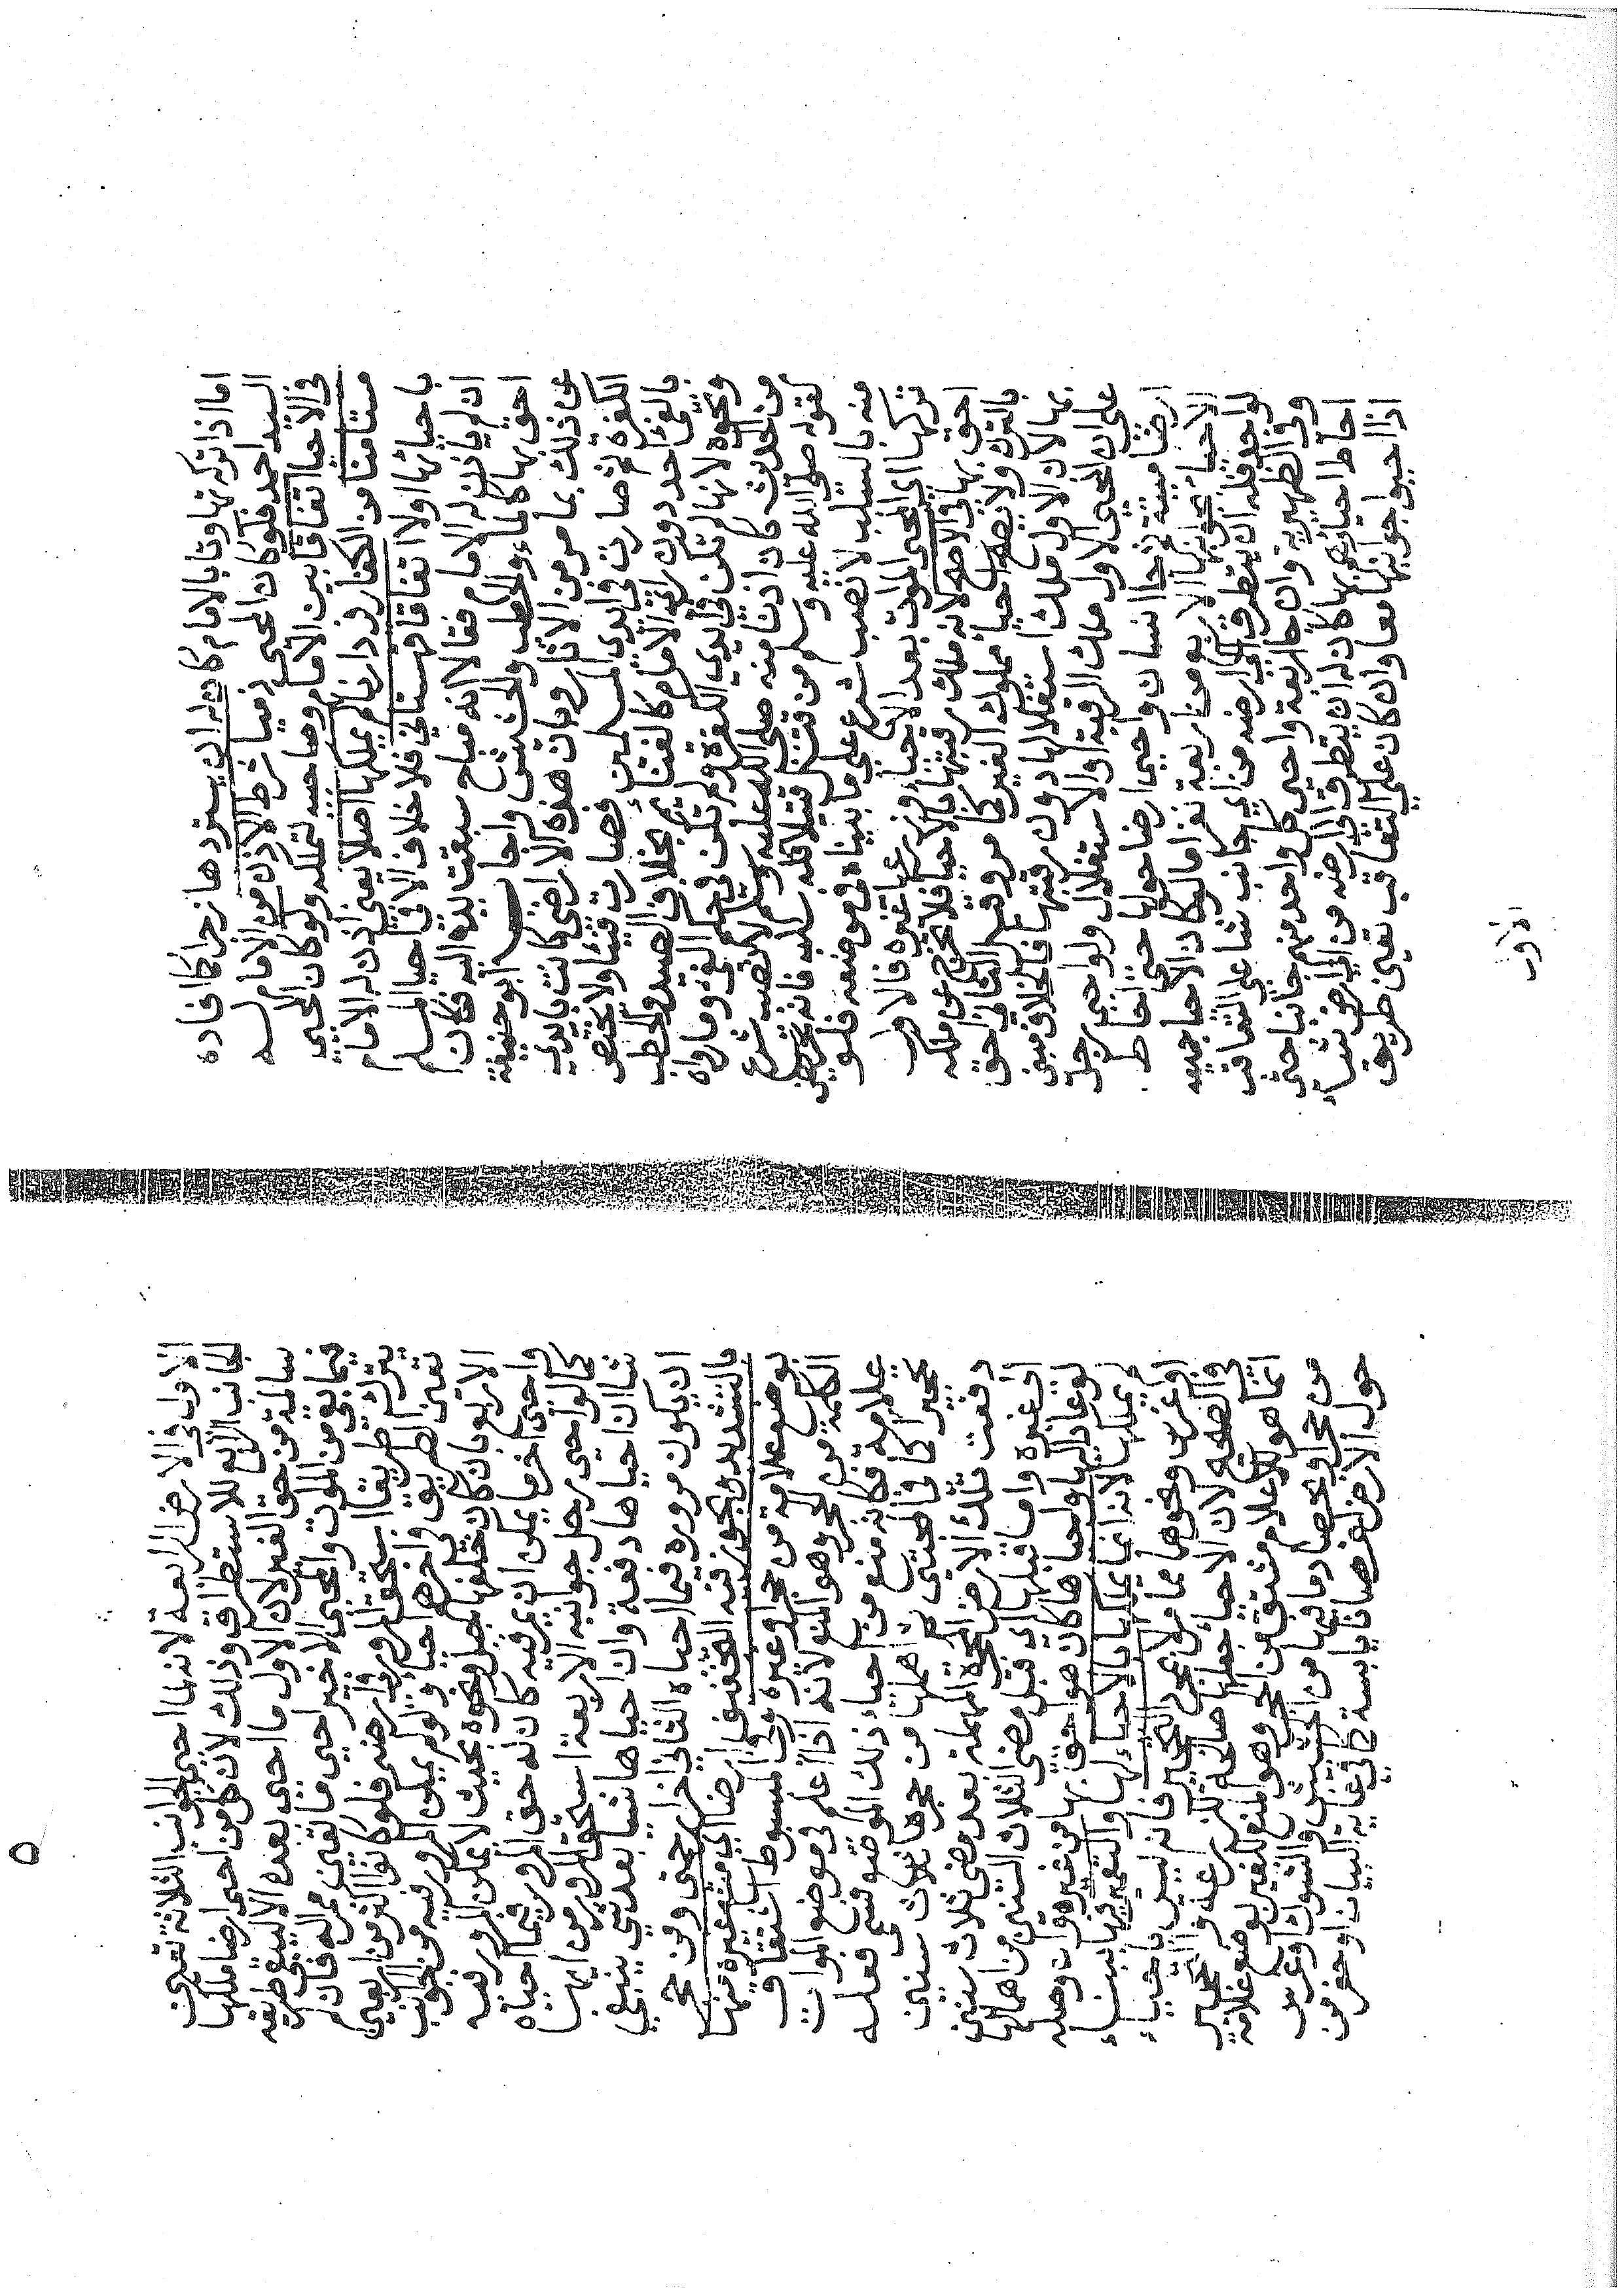 اما اذا تركه تهاونا بالامام كان له ان يستردها زجرا كما افاده
السيد احمد فلو كان المحيي ذميا شرط الاذن من الامام له
في الاحيا اتفاقا بين الامام وصاحبيه لتملكه ولو كان المحيي
مستامنا من الكفار في دارنا لم يملكها اصلا يعني اذن له الامام
باحيائها اولا اتفاقا قهستاني فلا خلاف الا في احيا المسلم
ان لم ياذن له الامام فقالا انه مباح سبقت يده اليه فكان
احق بها كالماء والحطب والحشيش واجاب ابو حنيفة
عن ذلك بما مر من الاثار وبان هذه الاراضي كانت بايدي
الكفرة ثم صارت في ايدي المسلمين فصارت فيئا ولا يختص
بالفئ احد دون راي الامام كالغنائم بخلاف الصيد والحطب
ونحوه لانها لم تكن في ايدي الكفرة ولم تكن في حكم الفئ وما رواه
من الحديث كان اذنا منه صلى الله عليه وسلم لا نصب شرع
كقوله صلى الله عليه وسلم من قتل قتيلا فله سلبه فانه تحريض
منه بالسلب لا نصب شرع على ما بيناه في موضعه فلو
تركها اي المحيي الموات بعد الاحياء وزرعها غيره فالاول
احق بها في الاصح لانه ملك رقبتها بالاحيا فلا تخرج عن ملكه
بالترك ولا يصح احيا مملوك الغير كما مر وقيل الثاني احق
بها لان الاول ملك استغلالها دون رقبتها فالخلاف مبني
على ان المحيي الاول ملك الرقبة او الاستغلال ولو احيى رجل
ارضا ميتة ثم جا انسان واحيى ارضا حولها حتى احاط
الاحياء بجوانبها الاربعة من اربعة نفر اما لو كان الاحيا جميعه
لواحد فله ان يتطرق الى ارضه من اي جانب شا على التعاقب
وفي الظهيرية وان جا اربعة واحيى كل واحد منهم جانبا حتى
احاط احياؤهم بها كان له ان يتطرق الى ارضه من اي ارض شاء
اذا احيوا جوانبها معا وان كان على التعاقب تعين طريق
الاول
٥
الاول في الارض الرابعة لانه لما احيى الجوانب الثلاثة تعين
الجانب الرابع للاستطراق وذلك لان من احيى ارضا ملكها
سالمة من حق الغير لان الاول ما احيى بعده الا ليبقى طريقه
فيما بقي من الموات والمحيي الاخير احيى ما تعين ممرا له فان لم
يترك طريقا استحق المرور في ارضه فلو كانوا اكثر من اربعة
تعين الطريق في اخرهم احياء ولو لم يمكن المرور فيه من جوانب
الاربع بان كان خلفها جبل ونحوه بحيث لا يمكن المرور فيه
واحيى اخر ما يمكن ان يمر فيه كان له حق المرور فيما احياه
كما لو احيى رجل جوانبه الاربعة استحق المرور من ايها
شا ان احياها دفعة وان احياها شيئا بعد شي ينبغي
ان يكون مروره فيما احياه الثاني اخرا حتى ومن حجر
بالتشديد ويجوز فيه التخفيف ارضا اي منع غيره منها
بوضع علامة من حجر او غيره وفي المبسوط اشتقاق
الكلمة من الحجر وهو المنع لانه اذا اعلم في موضع الموات
علامة فكانه منع من احياء ذلك الموضع فسمي فعله
تحجيرا كما في المجتبى ثم اهملها من حجرها ثلاث سنين
دفعت تلك الارض المحجرة المهملة بعد مضي ثلاث سنين
الى غيره واما قبلها اي قبل مضي الثلاث السنين من اهمالها
لو عاد اليها واحياها كان هو احق بها من غيره وان وصله
لم يملكها لانه انما يملكها بالاحياء لها والتعمير فيها ببناء
او غرس ونحوهما مما مر لا بمجرد التحجير فانه ليس باحياء
في الصحيح لان الاحياء جعلها صالحة للزرعة والتحجير
انما هو للاعلام مشتق من الحجر وهو المنع للغير بوضع علامة
من حجر او بحصاد ما فيها من الحشيش والشوك او غرس
حول الارض اغصانا يابسة كما في غاية البيان او حفر من